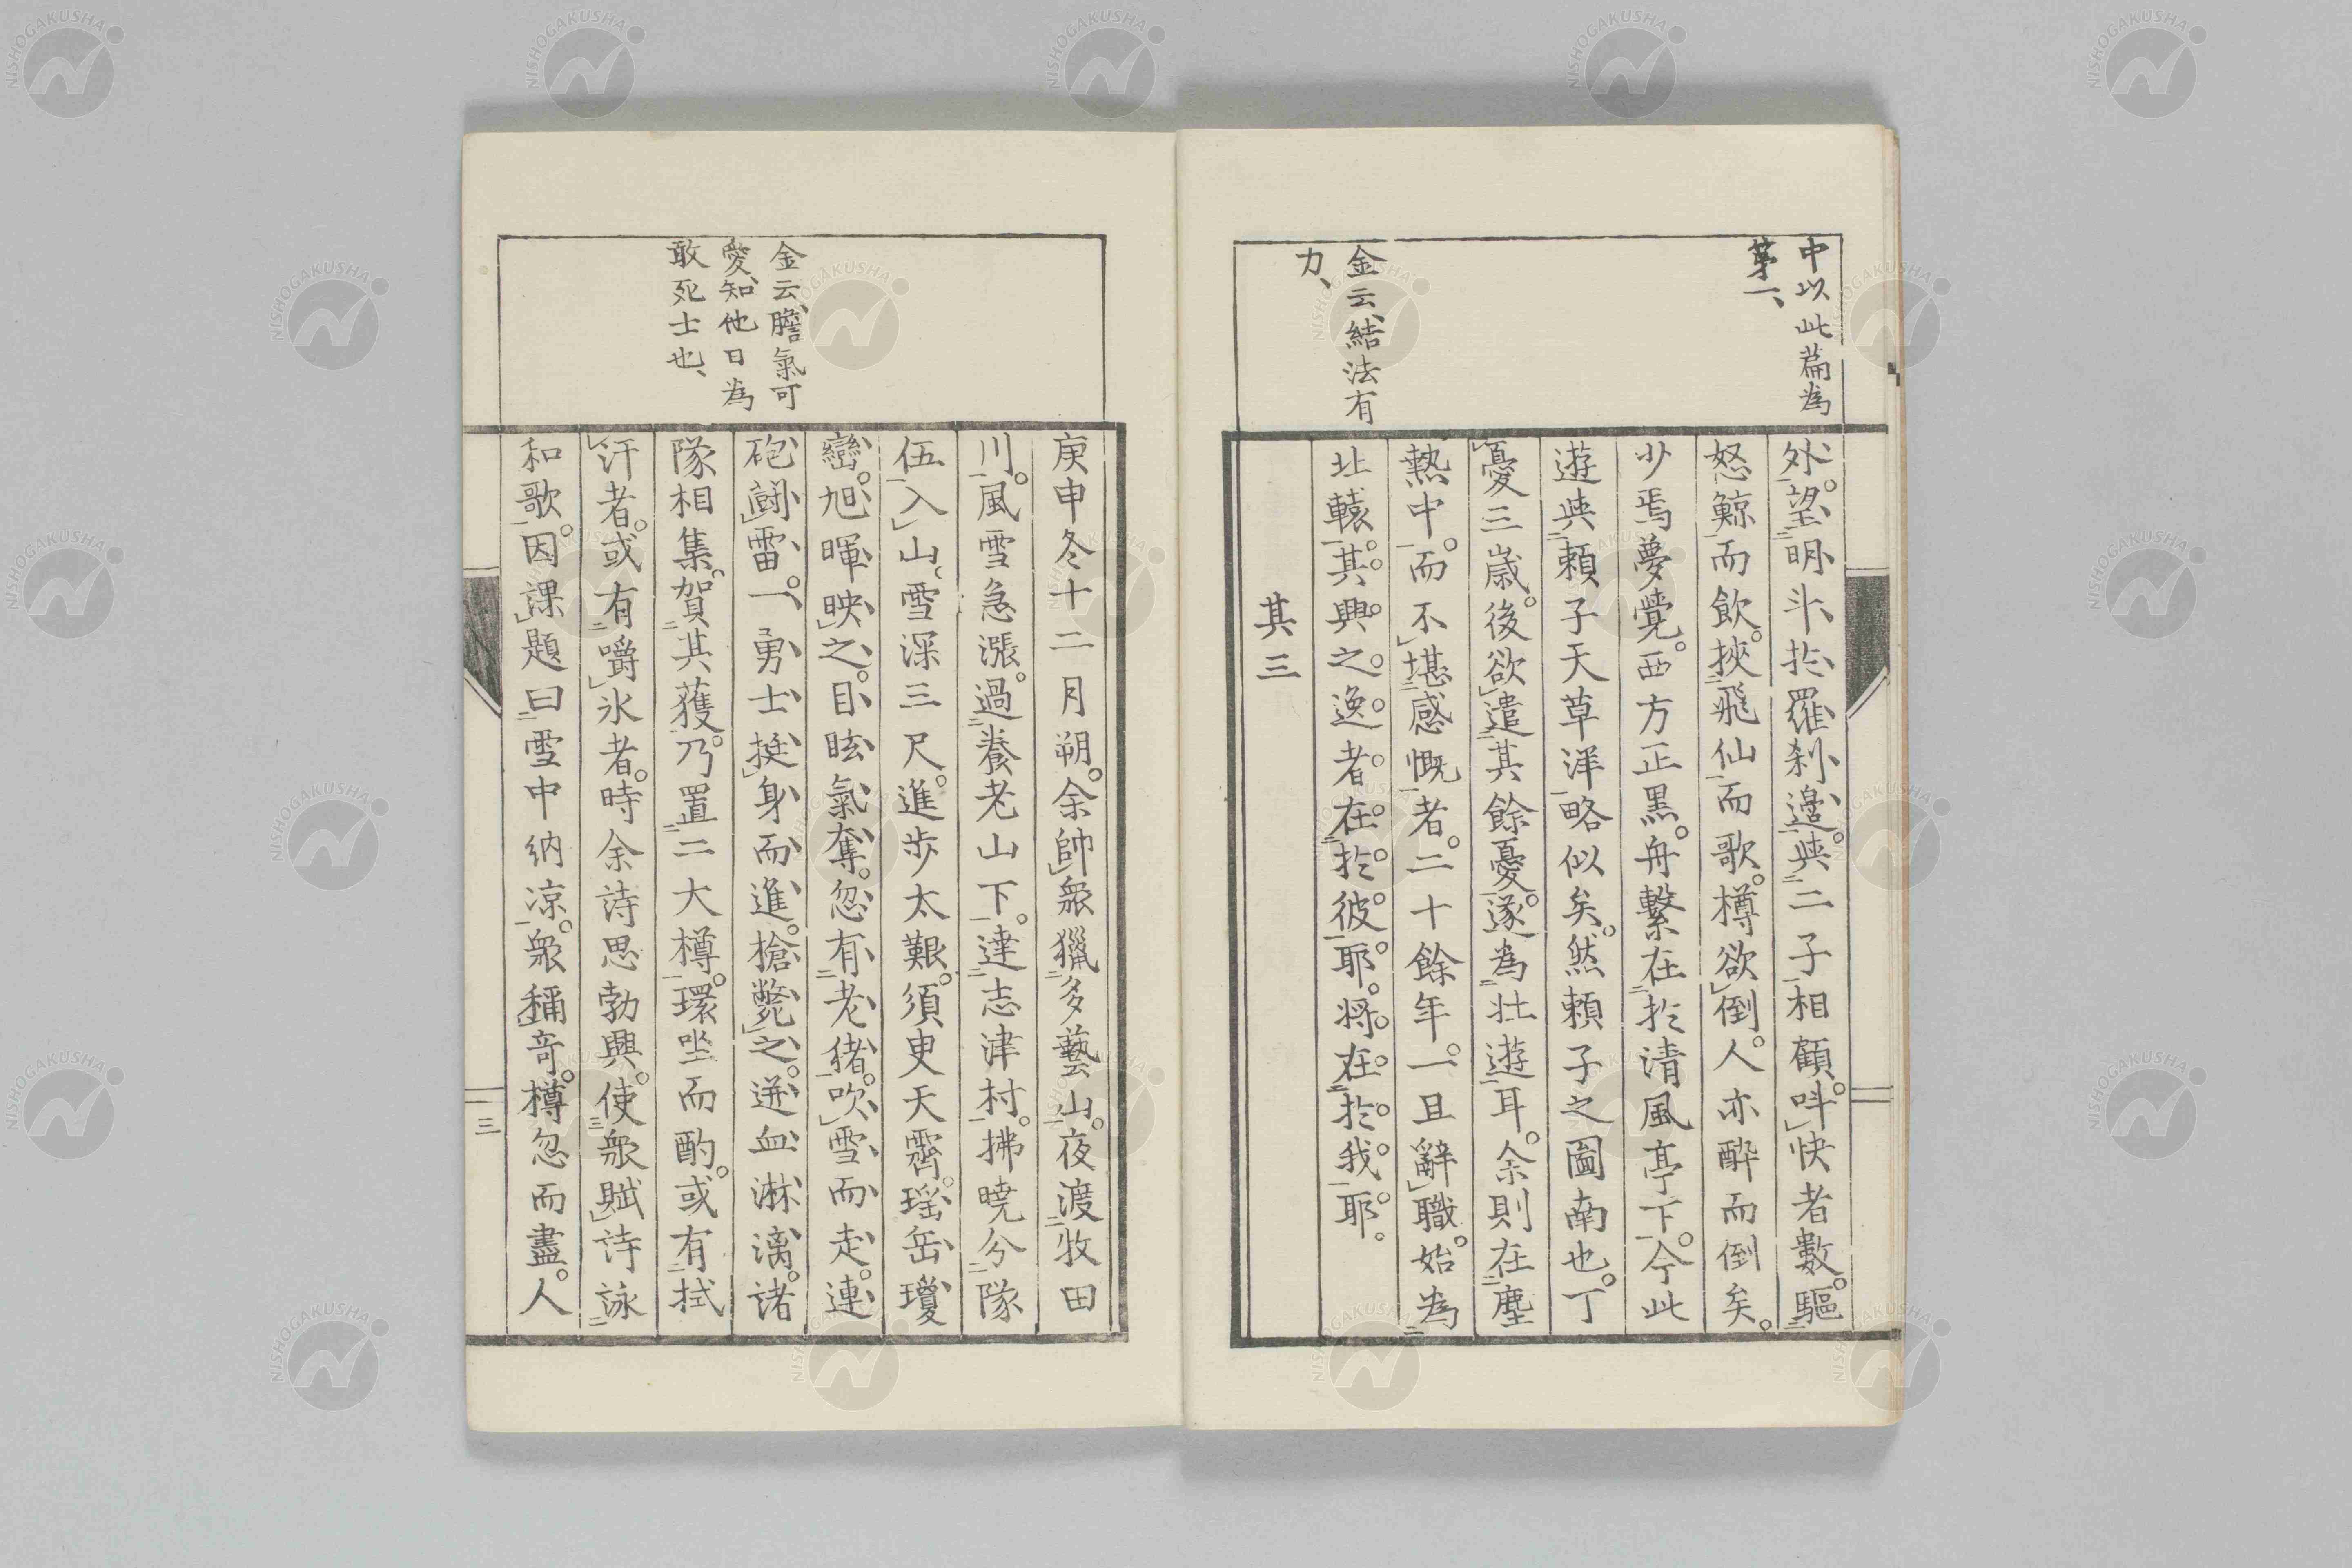 中以此篇為
第一、
外。望明斗於羅刹邊。與二子相顧。呌快者數。驅
怒鯨而飲。挾飛仙而歌。樽欲倒。人亦醉而倒矣。
少焉夢覺。西方正黑。舟繫在於清風亭下。今此
遊與頼子天草洋略似矣。然頼子之圖南也。丁
憂三歳。後欲遣其餘憂。遂為壮遊耳。余則在塵
熱中。而不堪感慨者。二十餘年。一旦辭職。始為
北轅。其興之逸者。在於彼耶。将在於我耶。
其三
金云、結法有
力、
庚申冬十二月朔。余帥衆獵多藝山。夜渡牧田
川。風雪急漲。過養老山下。達志津村。拂曉分隊
伍入山。雪深三尺。進歩太艱。須臾天霽。瑶岳瓊
巒。旭暉映之。目眩氣奪。忽有老猪。吹雪而走。連
砲鬪雷。一勇士挺身而進。槍斃之。迸血淋漓。諸
隊相集。賀其獲。乃置二大樽。環坐而酌。或有拭
汗者。或有嚼氷者。時余詩思勃興。使衆賦詩詠
和歌。因課題曰雪中納凉。衆稱奇。樽忽而盡。人
金云、膽氣可
愛、知他日為
敢死士也、
三
NISHOGAKUSHA